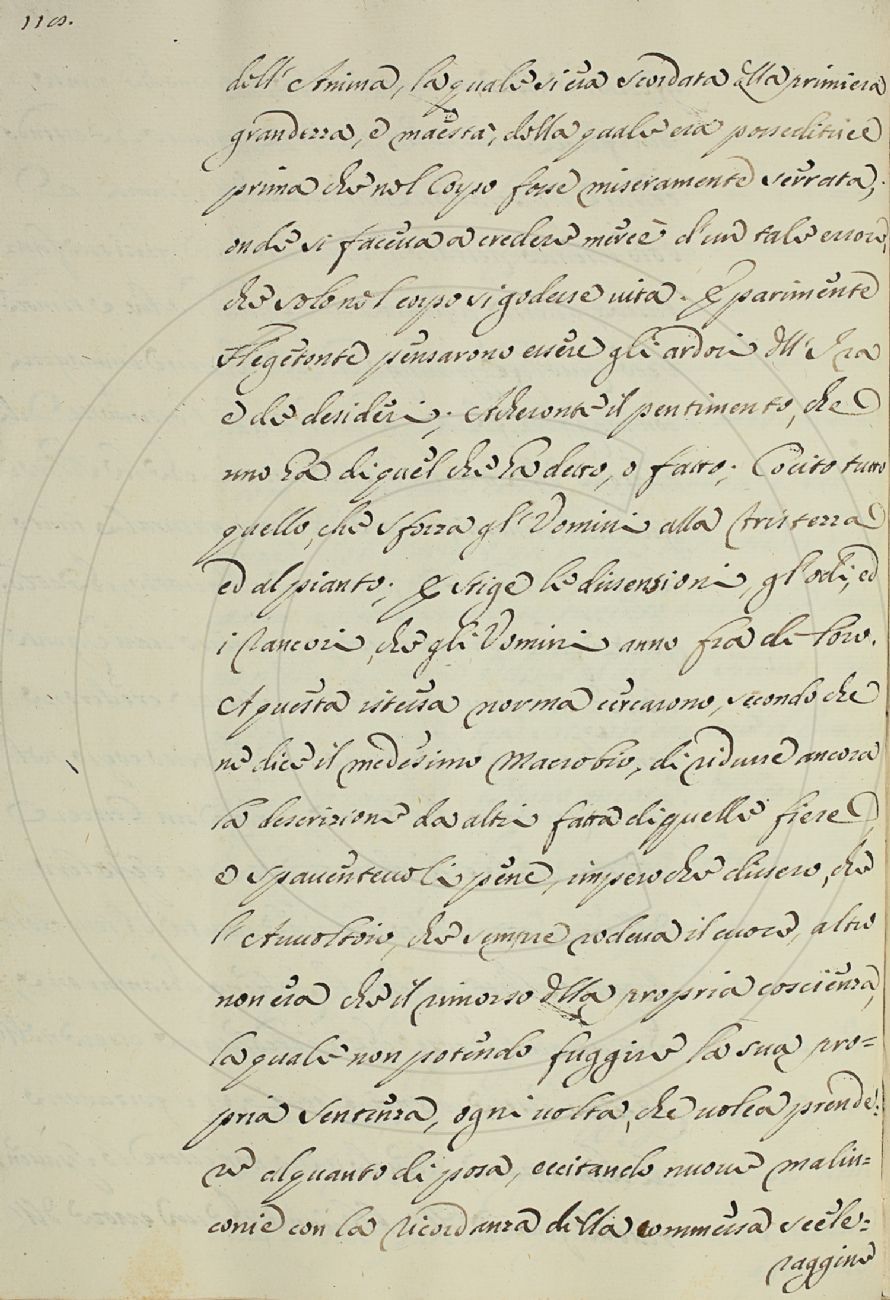 118.
dell'Anima, la quale si era scordata della primiera
grandezza, e maestà, della quale era posseditrice
prima che nel Corpo fosse miseramente serrata;
onde si faceva a credere mercè d'un tale errore,
che solo nel corpo si godesse vita. E parimente
Flegetonte pensarono essere gli ardori dell'Ira
e de desideri; Acheronte il pentimento, che
uno ha di quel che ha detto, o fatto; Cocito tutto
quello, che sforza gl'Uomini alla tristezza
ed al pianto; E Stige le dissensioni, gl'odi, ed
i rancori, che gli Uomini anno fra di loro.
A questa istessa norma cercarono, secondo che
ne dice il medesimo Macrobio, di ridurre ancora
la descrizione da altri fatta di quelle fiere
e spauenteuoli pene, impero che dissero, che
l'Auuoltoio, che sempre rodeua il cuore, altro
non era che il rimorso della propria coscienza,
la quale non potendo fuggire la sua pro=
pria sentenza, ogni uolta, che uolea prende=
re alquanto di posa, eccitando nuoue malin=
conie con la ricordanza della commessa scele=
raggine